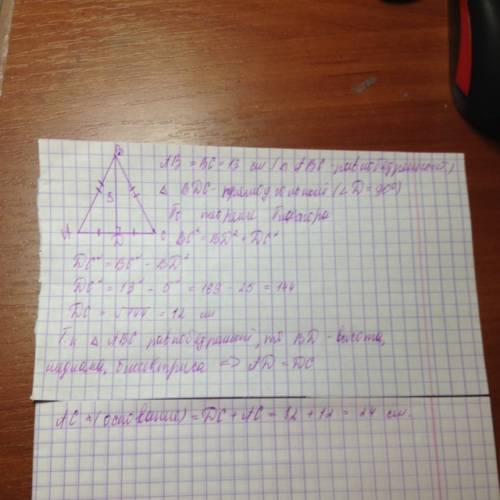 B
AB = BC = 13 см (△ ABC - равнобедренный)
△ BDC - прямоугольный (∠D = 90°)
5
По теореме Пифагора
A D C BC² = BD² + DC²
DC² = BC² - BD²
DC² = 13² - 5² = 169 - 25 = 144
DC = √144 = 12 см
Т.к △ ABC равнобедренный, то BD - высота,
медиана, биссектриса => AD = DC
AC (основание) = DC + AC = 12 + 12 = 24 см.